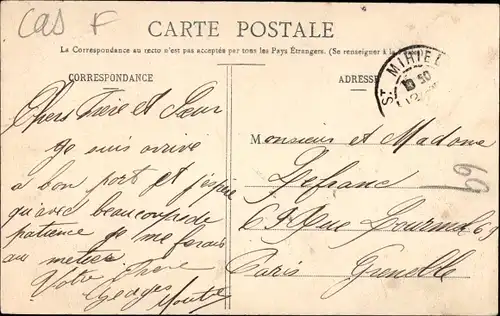 Cas F
CARTE POSTALE
La Correspondance au recto n'est pas acceptée par tous les Pays Étrangers. (Se renseigner à la
CORRESPONDANCE
ADRESSE
ST MIHIEL
10 50
Chers Frère et Sœur
Je suis arrivé
a bon port et j'espère
qu'avec beaucoup de
patience je me ferais
au metier
Votre frère
Georges
Monsieur et Madame
Lefranc
Rue 69
Paris Grenelle
69